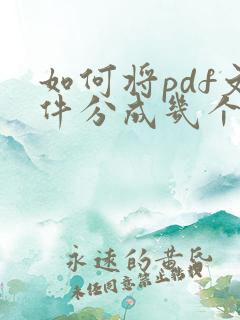 如何将pdf文
件分成几个
永远的黄昏
未经同意禁止转载